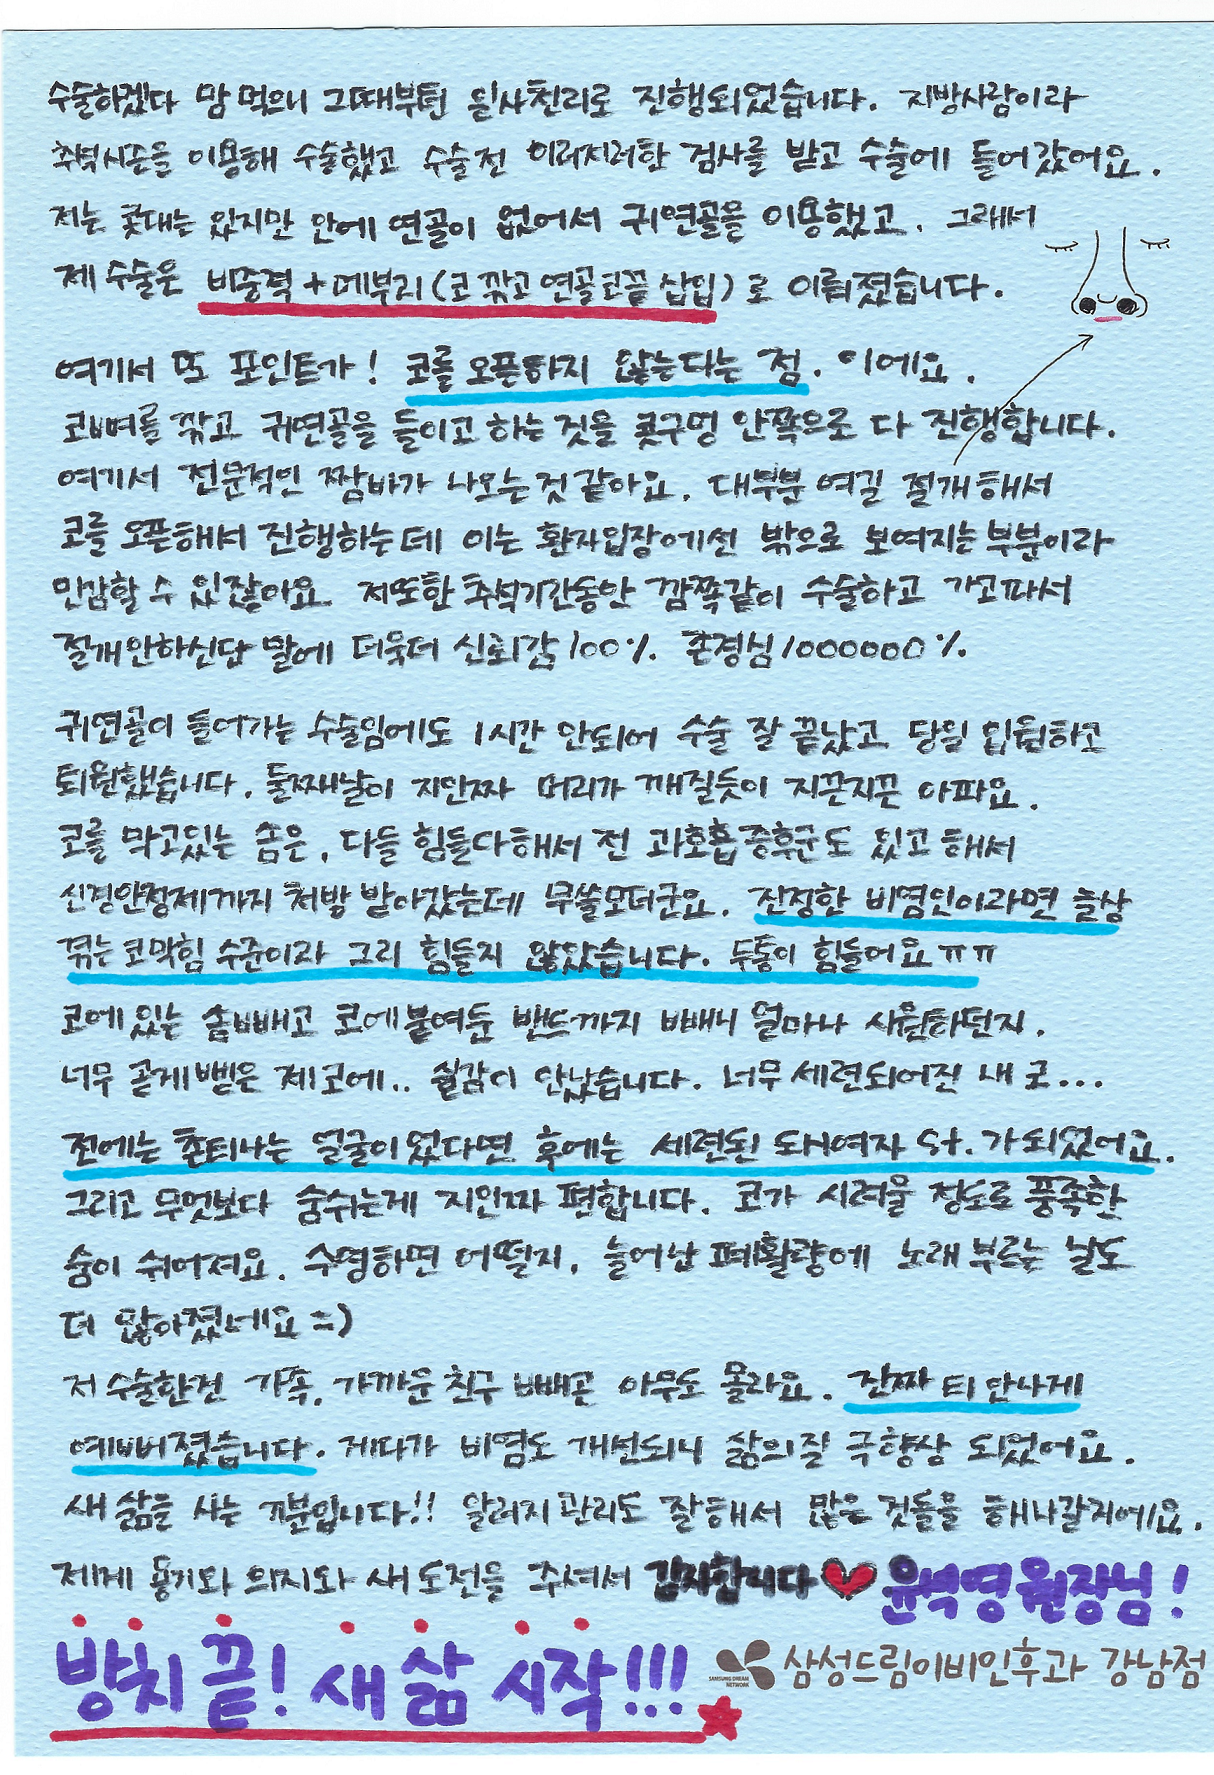 수술하겠다 맘 먹으니 그때부턴 일사천리로 진행되었습니다. 지방사람이라
추석시즌을 이용해 수술했고 수술전 이러저러한 검사를 받고 수술에 들어갔어요.
저는 콧대는 있지만 안에 연골이 없어서 귀연골을 이용했고. 그래서
제 수술은 비중격 + 메부리 (코 깎고 연골 코끝 삽입) 로 이뤄졌습니다.
여기서 또 포인트가! 코를 오픈하지 않는다는 점. 이에요.
코뼈를 깎고 귀연골을 들이고 하는 것을 콧구멍 안쪽으로 다 진행합니다.
여기서 전문적인 짬바가 나오는 것 같아요. 대부분 여길 절개해서
코를 오픈해서 진행하는데 이는 환자입장에선 밖으로 보여지는 부분이라
민감할 수 있잖아요. 저또한 추석기간동안 깜쪽같이 수술하고 가고파서
절개안하신단 말에 더욱더 신뢰감 100%. 존경심 1000000%.
귀연골이 들어가는 수술임에도 1시간 안되어 수술 잘 끝났고 당일 입원하고
퇴원했습니다. 둘째날이 지인짜 머리가 깨질듯이 지끈지끈 아파요.
코를 막고있는 솜은, 다들 힘들다해서 전 과호흡증후군도 있고 해서
신경안정제까지 처방 받아갔는데 무쓸모더군요. 진정한 비염인이라면 늘상
겪는 코막힘 수준이라 그리 힘들지 않았습니다. 두통이 힘들어요 ㅠㅠ
코에 있는 솜 빼고 코에 붙여둔 밴드까지 빼니 얼마나 시원하던지.
너무 곧게 뻗은 제 코에.. 실감이 안났습니다. 너무 세련되어진 내 코...
전에는 촌티나는 얼굴이었다면 후에는 세련된 도시여자 st. 가 되었어요.
그리고 무엇보다 숨쉬는게 지인짜 편합니다. 코가 시려울 정도로 풍족한
숨이 쉬어져요. 수영하면 어떨지, 늘어난 폐활량에 노래 부르는 날도
더 많아졌네요 =)
저 수술한건 가족, 가까운 친구 빼곤 아무도 몰라요. 진짜 티 안나게
예뻐졌습니다. 게다가 비염도 개선되니 삶의질 극향상 되었어요.
새 삶을 사는 기분입니다!! 알러지 관리도 잘해서 많은 것들을 해나갈거에요.
제게 용기와 의지와 새 도전을 주셔서 감사합니다 ♥ 윤석영 원장님!
방치 끝! 새 삶 시작!!!
SAMSUNG DREAM NETWORK 삼성드림이비인후과 강남점